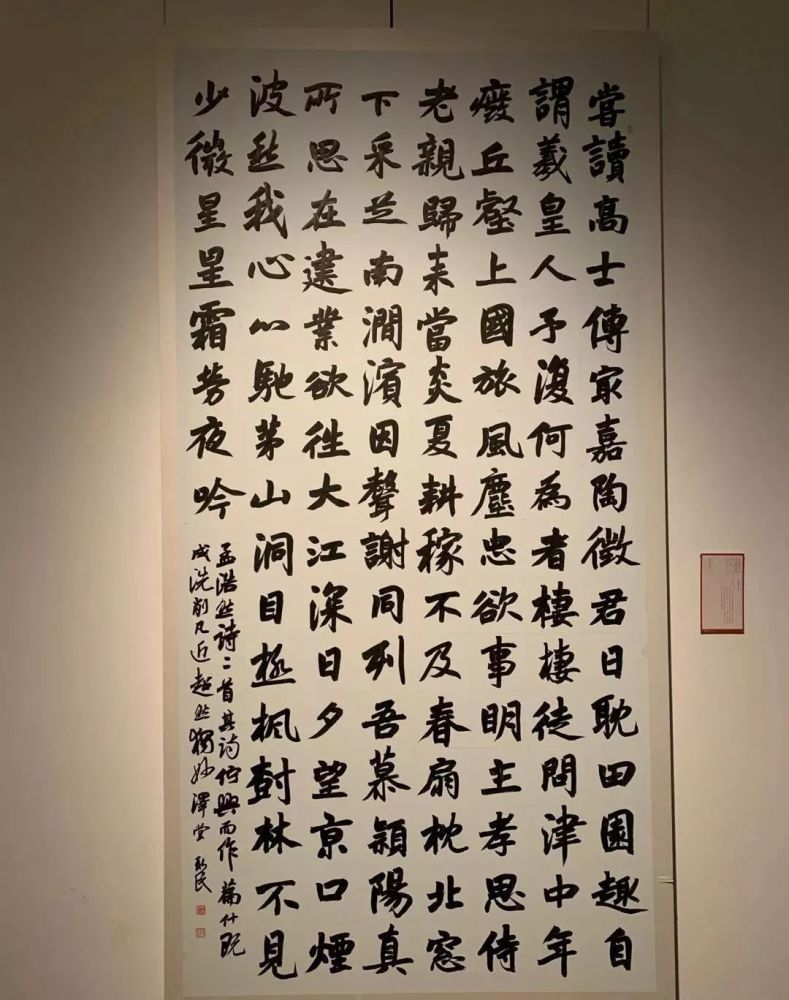 甞讀高士傳冣嘉陶徵君日耽田園趣自
謂羲皇人予復何為者棲棲徒問津中年
廢丘壑上國旅風塵忠欲事明主孝思侍
老親歸来當炎夏耕稼不及春扇枕北窓
下采芝南澗濱因聲謝同列吾慕穎陽真
所思在建業欲往大江深日夕望京口煙
波愁我心心馳茅山洞目極楓樹林不見
少微星星霜勞夜吟
孟浩然詩二首其詩佇興而作篇什既
成洗削凡近超然獨妙澤堂